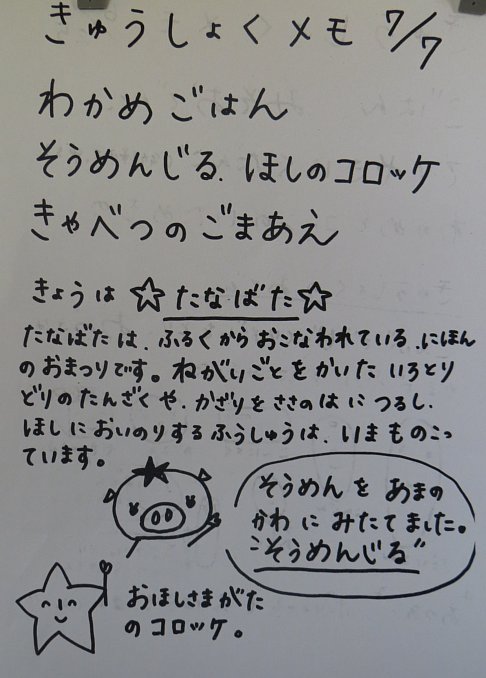 きゅうしょくメモ 7/7
わかめごはん
そうめんじる、ほしのコロッケ
きゃべつのごまあえ
きょうは☆たなばた☆
たなばたは、ふるくからおこなわれている、にほん
のおまつりです。ねがいごとをかいたいろとり
どりのたんざくや、かざりをささのはにつるし、
ほしにおいのりするふうしゅうは、いまものこっ
ています。
そうめんをあまの
かわにみたてました。
"そうめんじる"
おほしさまがた
のコロッケ。